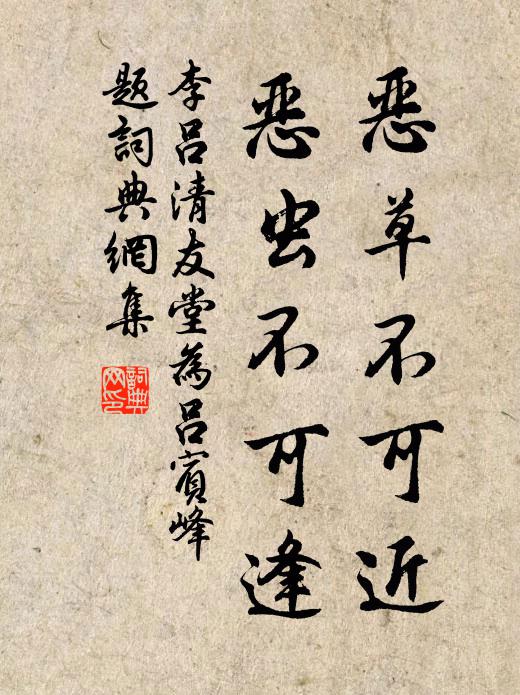 恶草不可近
恶虫不可逢
李吕清友堂为吕宾峰
题词典网集
詞典
网印